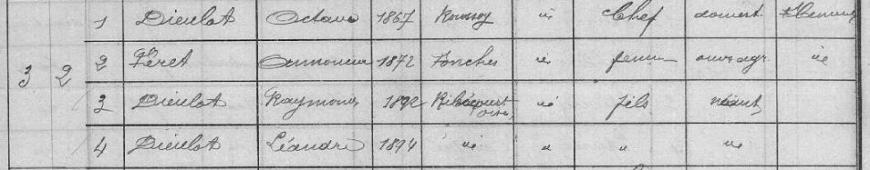 1 Dieulot Octave 1867 id Chef domest.
3 2 2 Féret 1872 Fonches id femme ouv. agr. id
3 Dieulot Raymond 1892 Ribécourt Oise id fils néant
4 Dieulot Léandre 1894 id " " id